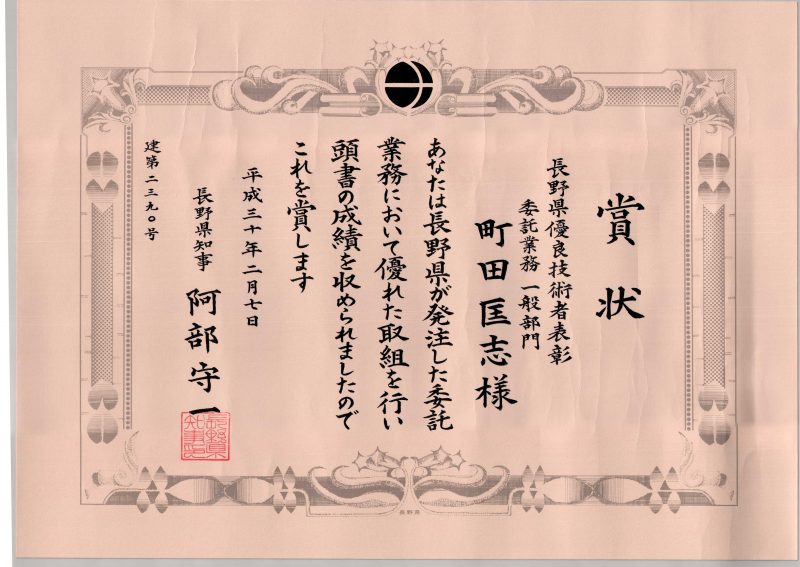 賞状
長野県優良技術者表彰
委託業務 一般部門
町田匡志様
あなたは長野県が発注した委託
業務において優れた取組を行い
頭書の成績を収められましたので
これを賞します
平成三十年二月七日
長野県知事 阿部守一
長野県知事印
建第二三九〇号
長野県